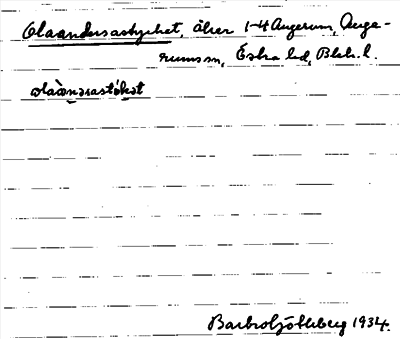 Olaandersastycket, åker 1-4 Augerum, Auge-
rums sn, Östra hd, Blek. l.
olaàndərsastỳkət
Barbro Götlberg 1934.